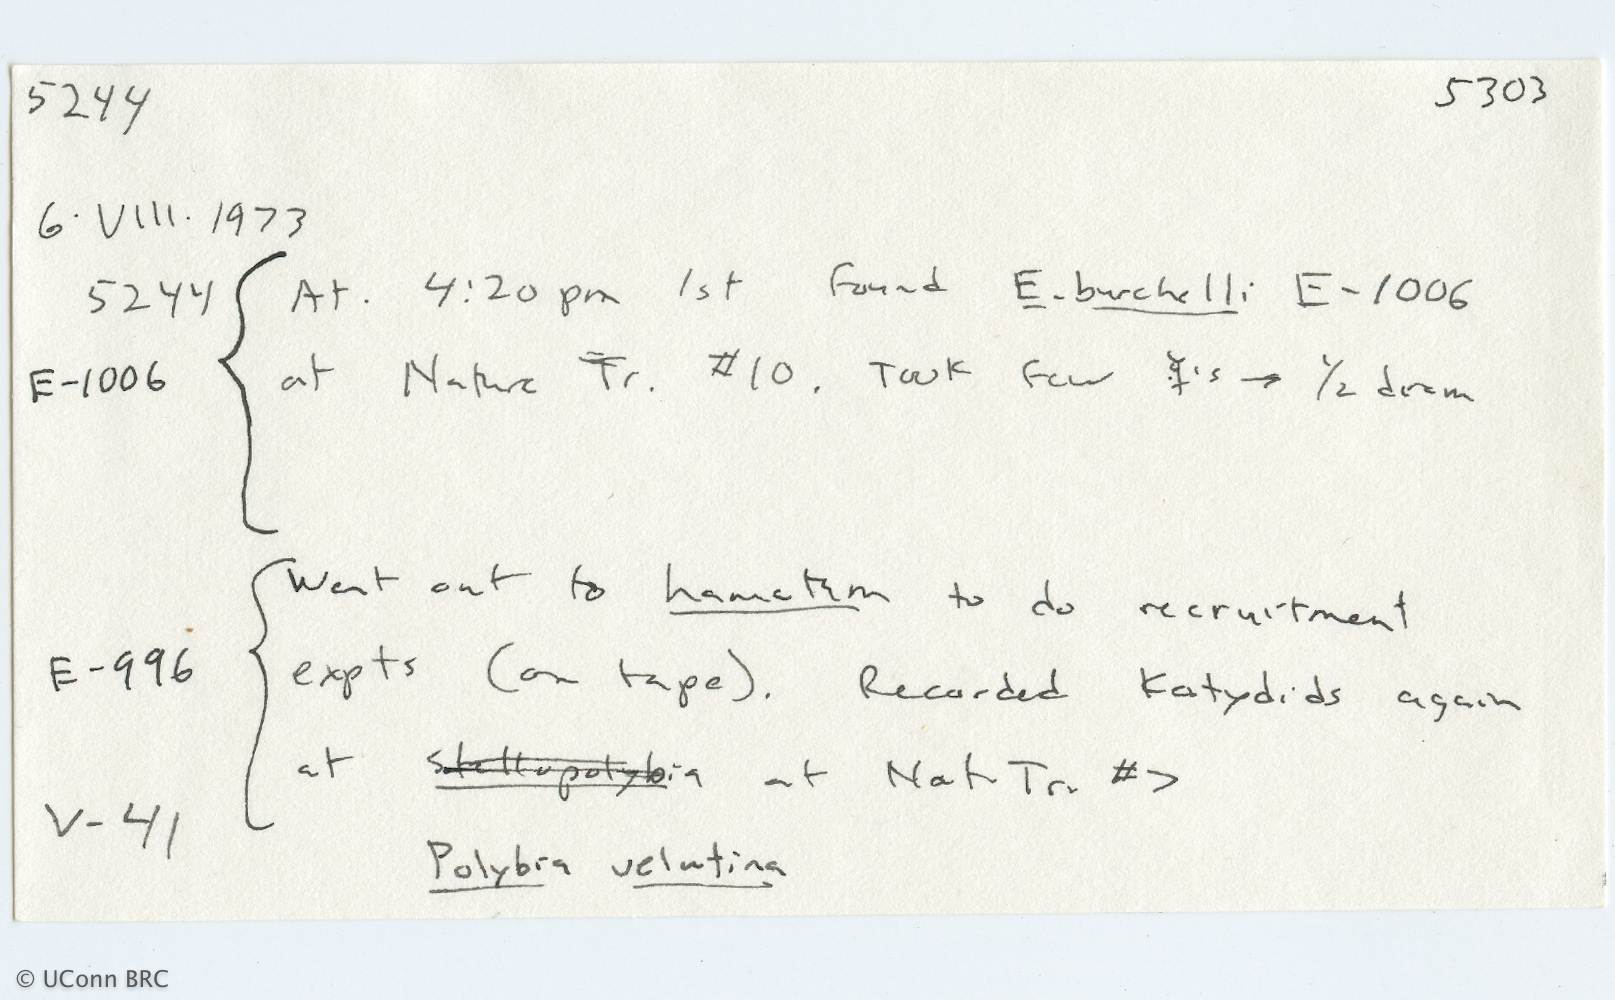 5244 5303
6·VIII·1973
5244 At. 4:20 pm 1st found E. burchelli E-1006
E-1006 at Nature Tr. #10. Took few ☿'s → 1/2 dram
Went out to hamatum to do recruitment
E-996 expts (on tape). Recorded Katydids again
at Stellopolybia at Nat. Tr. #7
V-41
Polybia velutina
© UConn BRC